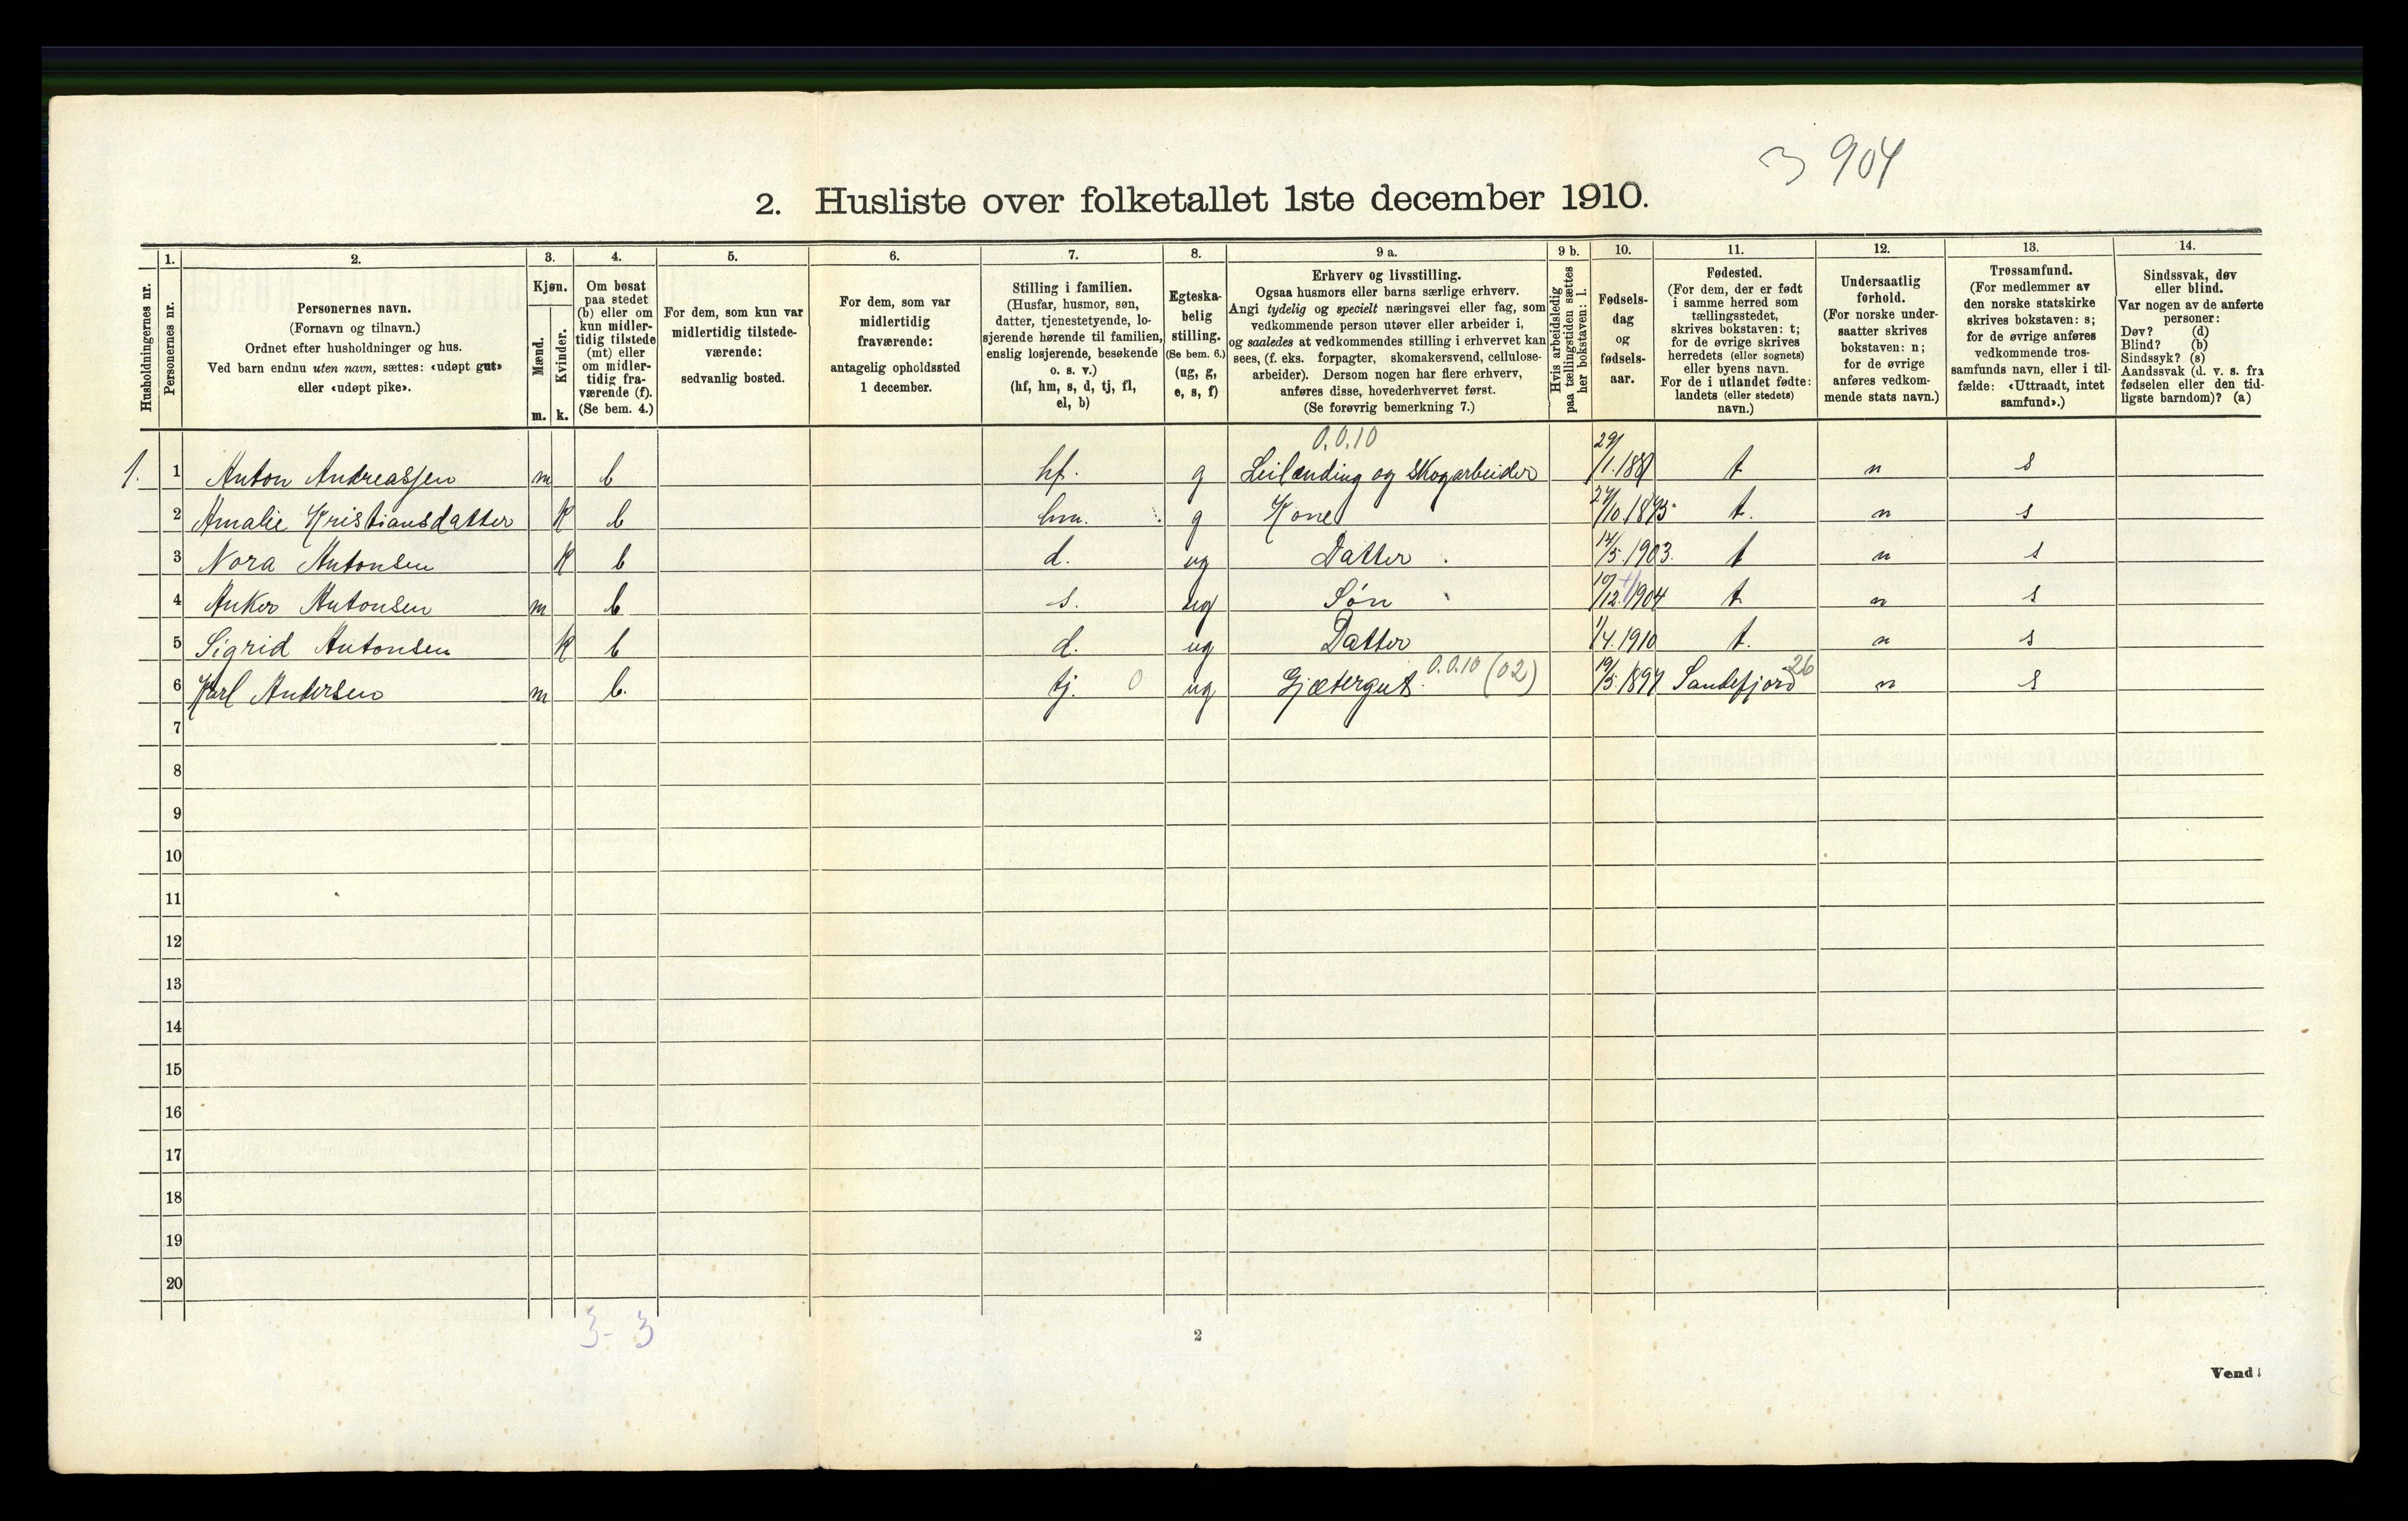 3 904
2. Husliste over folketallet 1ste december 1910.
1. 2. 3. 4. 5. 6. 7. 8. 9 a. 9 b. 10. 11. 12. 13. 14.
Husholdningernes nr.
Personernes nr.
Personernes navn.
(Fornavn og tilnavn.)
Ordnet efter husholdninger og hus.
Ved barn endnu uten navn, sættes: «udøpt gut»
eller «udøpt pike».
Kjøn.
Mænd.
Kvinder.
m. k.
Om bosat
paa stedet
(b) eller om
kun midler-
tidig tilstede
(mt) eller
om midler-
tidig fra-
værende (f).
(Se bem. 4.)
For dem, som kun var
midlertidig tilstede-
værende:
sedvanlig bosted.
For dem, som var
midlertidig
fraværende:
antagelig opholdssted
1 december.
Stilling i familien.
(Husfar, husmor, søn,
datter, tjenestetyende, lo-
sjerende hørende til familien,
enslig losjerende, besøkende
o. s. v.)
(hf, hm, s, d, tj, fl,
el, b)
Egteska-
belig
stilling.
(Se bem. 6.)
(ug, g,
e, s, f)
Erhverv og livsstilling.
Ogsaa husmors eller barns særlige erhverv.
Angi tydelig og specielt næringsvei eller fag, som
vedkommende person utøver eller arbeider i,
og saaledes at vedkommendes stilling i erhvervet kan
sees, (f. eks. forpagter, skomakersvend, cellulose-
arbeider). Dersom nogen har flere erhverv,
anføres disse, hovederhvervet først.
(Se forøvrig bemerkning 7.)
Hvis arbeidsledig
paa tællingstiden sættes
her bokstaven: l.
Fødsels-
dag
og
fødsels-
aar.
Fødested.
(For dem, der er født
i samme herred som
tællingsstedet,
skrives bokstaven: t;
for de øvrige skrives
herredets (eller sognets)
eller byens navn.
For de i utlandet fødte:
landets (eller stedets)
navn.)
Undersaatlig
forhold.
(For norske under-
saatter skrives
bokstaven: n;
for de øvrige
anføres vedkom-
mende stats navn.)
Trossamfund.
(For medlemmer av
den norske statskirke
skrives bokstaven: s;
for de øvrige anføres
vedkommende tros-
samfunds navn, eller i til-
fælde: «Uttraadt, intet
samfund».)
Sindssvak, døv
eller blind.
Var nogen av de anførte
personer:
Døv? (d)
Blind? (b)
Sindssyk? (s)
Aandssvak (d. v. s. fra
fødselen eller den tid-
ligste barndom)? (a)
0.0.10
1. 1 Anton Andreassen m b hf. g Leilending og skogarbeider 29/1.1881 t. n s
2 Amalie Kristiansdatter k b hm. g Kone 27/10.1875 t. n s
3 Nora Antonsen k b d. ug Datter 14/5.1903. t n s
4 Anker Antonsen m b s. ug Søn 10/12.1904 t. n s
5 Sigrid Antonsen k b d. ug Datter 1/4.1910 t. n s
6 Karl Andersen m b. tj. 0 ug Gjætergut. 0.0.10 (02) 19/5.1897 Sandefjord 26 n s
7
8
9
10
11
12
13
14
15
16
17
18
19
20
3- 3
2
Vend!